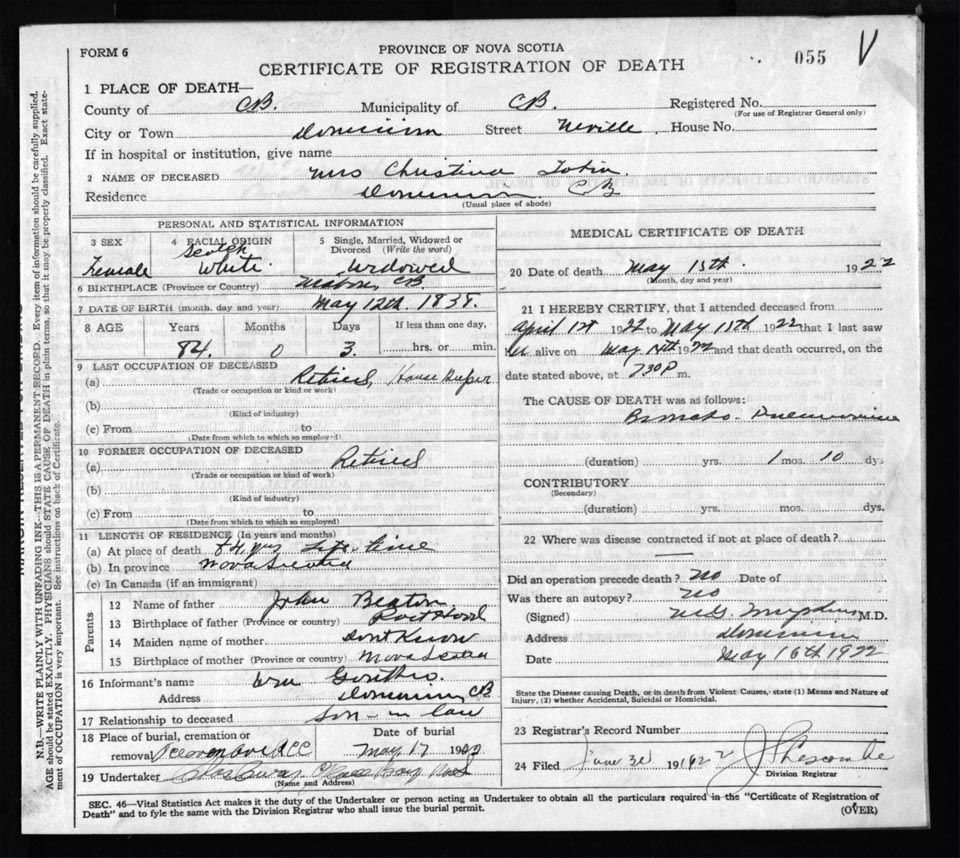 FORM 6
PROVINCE OF NOVA SCOTIA
CERTIFICATE OF REGISTRATION OF DEATH
055
V
1 PLACE OF DEATH—
County of CB. Municipality of CB. Registered No.
(For use of Registrar General only)
City or Town Dominion Street Neville House No.
If in hospital or institution, give name
2 NAME OF DECEASED Mrs Christina Tobin.
Residence Dominion CB
(Usual place of abode)
PERSONAL AND STATISTICAL INFORMATION
3 SEX 4 RACIAL ORIGIN 5 Single, Married, Widowed or Divorced (Write the word)
Scotch
Female White Widowed
6 BIRTHPLACE (Province or Country) Mabou, CB.
7 DATE OF BIRTH (month, day and year) May 12th. 1838.
8 AGE Years Months Days If less than one day,
84. 0 3. hrs. or min.
9 LAST OCCUPATION OF DECEASED
(a) Retired, House Keeper
(Trade or occupation or kind of work)
(b)
(Kind of industry)
(c) From to
(Date from which to which so employed)
10 FORMER OCCUPATION OF DECEASED
(a) Retired
(Trade or occupation or kind of work)
(b)
(Kind of industry)
(c) From to
(Date from which to which so employed)
11 LENGTH OF RESIDENCE (In years and months)
(a) At place of death 84 yrs Life time
(b) In province Nova Scotia
(c) In Canada (if an immigrant)
Parents
12 Name of father John Beaton
13 Birthplace of father (Province or country) Port Hood
14 Maiden name of mother Dont Know
15 Birthplace of mother (Province or country) Nova Scotia
16 Informant's name Wm Gouthro.
Address Dominion CB
17 Relationship to deceased Son-in law
18 Place of burial, cremation or removal Date of burial
May 17 1922
19 Undertaker Glace Bay NS
(Name and Address)
MEDICAL CERTIFICATE OF DEATH
20 Date of death May 15th. 1922
(Month, day and year)
21 I HEREBY CERTIFY, that I attended deceased from
April 1st 1922 to May 15th 1922 that I last saw
her alive on May 14th 1922 and that death occurred, on the
date stated above, at 730 P m.
The CAUSE OF DEATH was as follows:
Broncho-Pneumonia
(duration) yrs. 1 mos. 10 dys
CONTRIBUTORY
(Secondary)
(duration) yrs. mos. dys.
22 Where was disease contracted if not at place of death?
Did an operation precede death? No Date of
Was there an autopsy? No
(Signed) M.D.
Address Dominion
Date May 16th 1922
State the Disease causing Death, or in death from Violent Causes, state (1) Means and Nature of
Injury, (2) whether Accidental, Suicidal or Homicidal.
23 Registrar's Record Number
24 Filed June 3d 1922
Division Registrar
SEC. 46—Vital Statistics Act makes it the duty of the Undertaker or person acting as Undertaker to obtain all the particulars required in the "Certificate of Registration of
Death" and to fyle the same with the Division Registrar who shall issue the burial permit.
(OVER)
N.B.—WRITE PLAINLY WITH UNFADING INK—THIS IS A PERMANENT RECORD. Every item of information should be carefully supplied.
AGE should be stated EXACTLY. PHYSICIANS should STATE CAUSE OF DEATH in plain terms, so that it may be properly classified. Exact statement of OCCUPATION is very important. See instructions on back of Certificate.